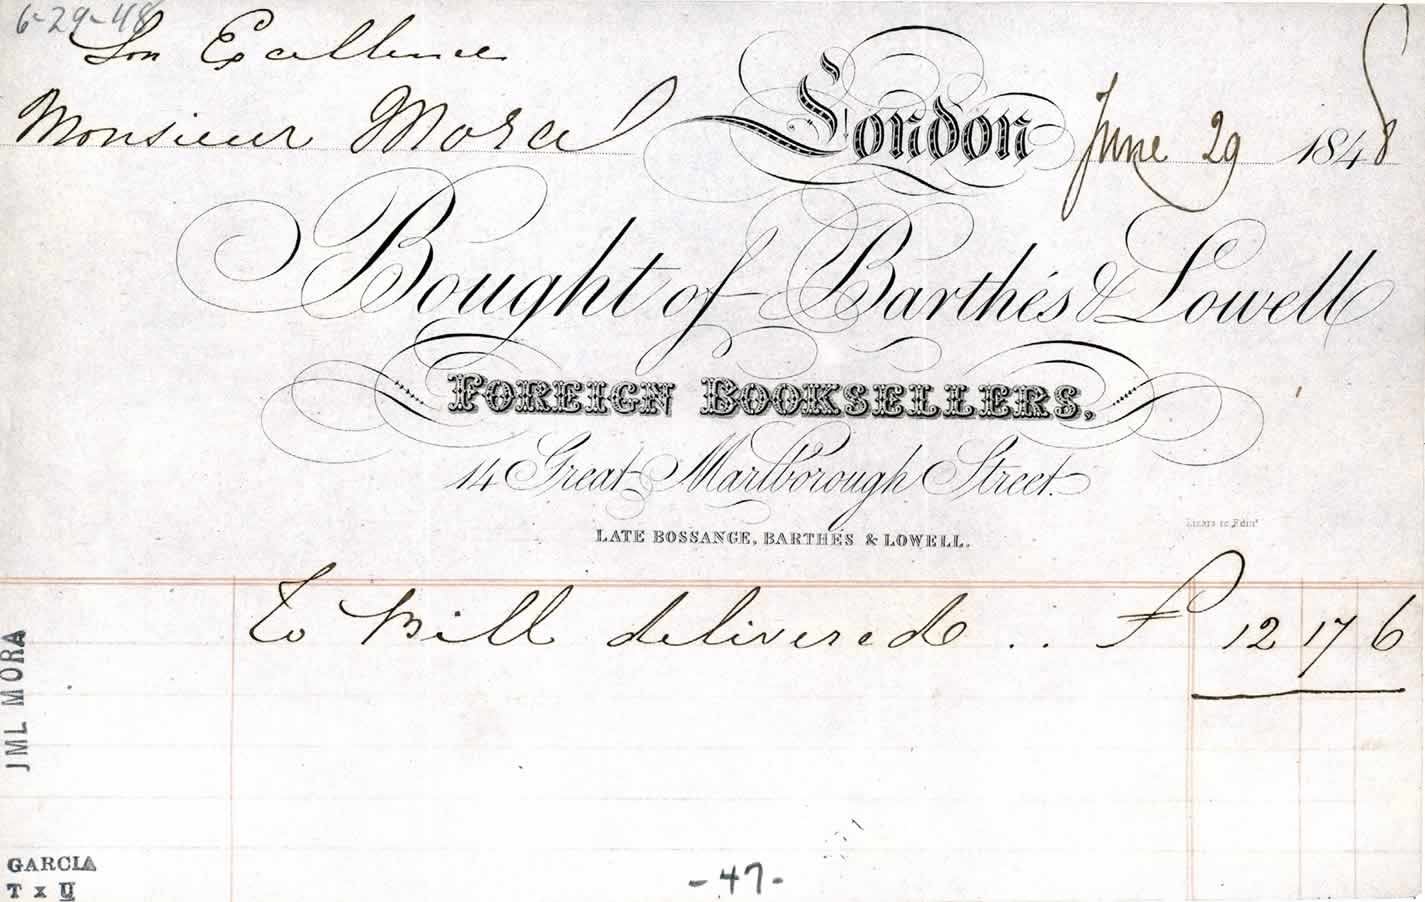 6-29-48
Son Excellence
Monsieur Mora
London June 29 1848
Bought of Barthés & Lowell
FOREIGN BOOKSELLERS,
14 Great Marlborough Street.
LATE BOSSANGE, BARTHÉS & LOWELL.
To Bill delivered .. £ 12 17 6
JML MORA
GARCIA
T x U
-47-